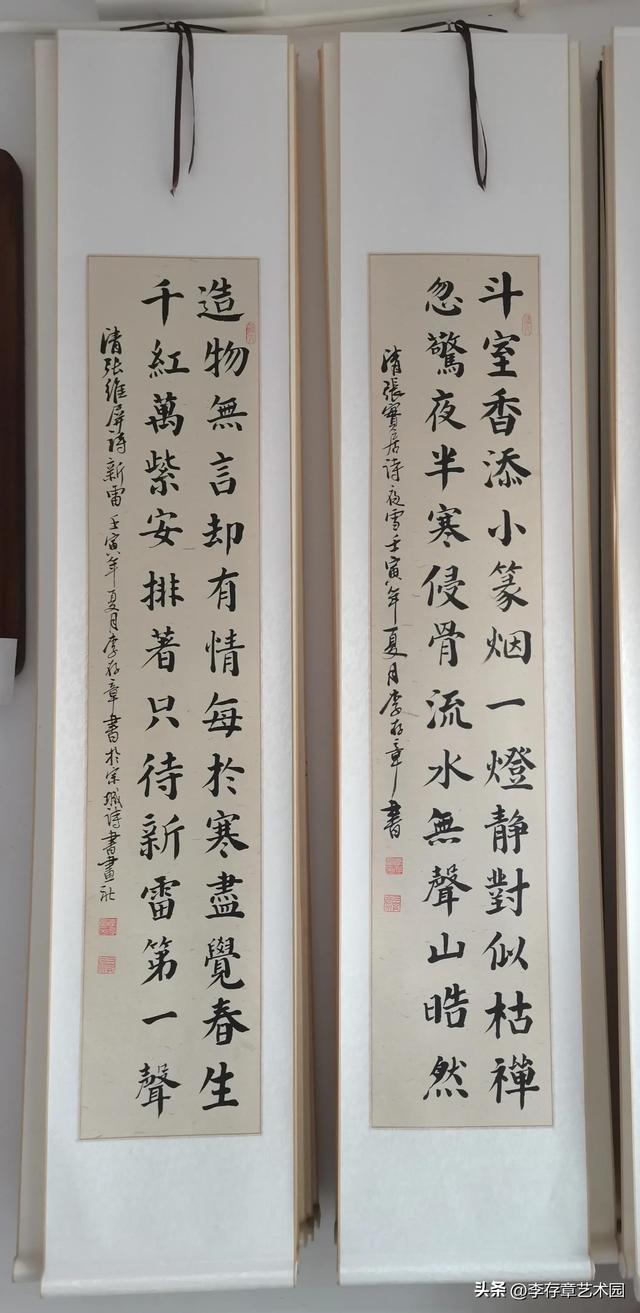 斗室香添小篆烟一燈静對似枯禪
忽驚夜半寒侵骨流水無聲山皓然
清張實居詩夜雪壬寅年夏月李存章書
造物無言却有情每於寒盡覺春生
千紅萬紫安排著只待新雷第一聲
清张維屏詩新雷壬寅年夏月李存章書於宗城詩書畫社
头条 @李存章艺术园